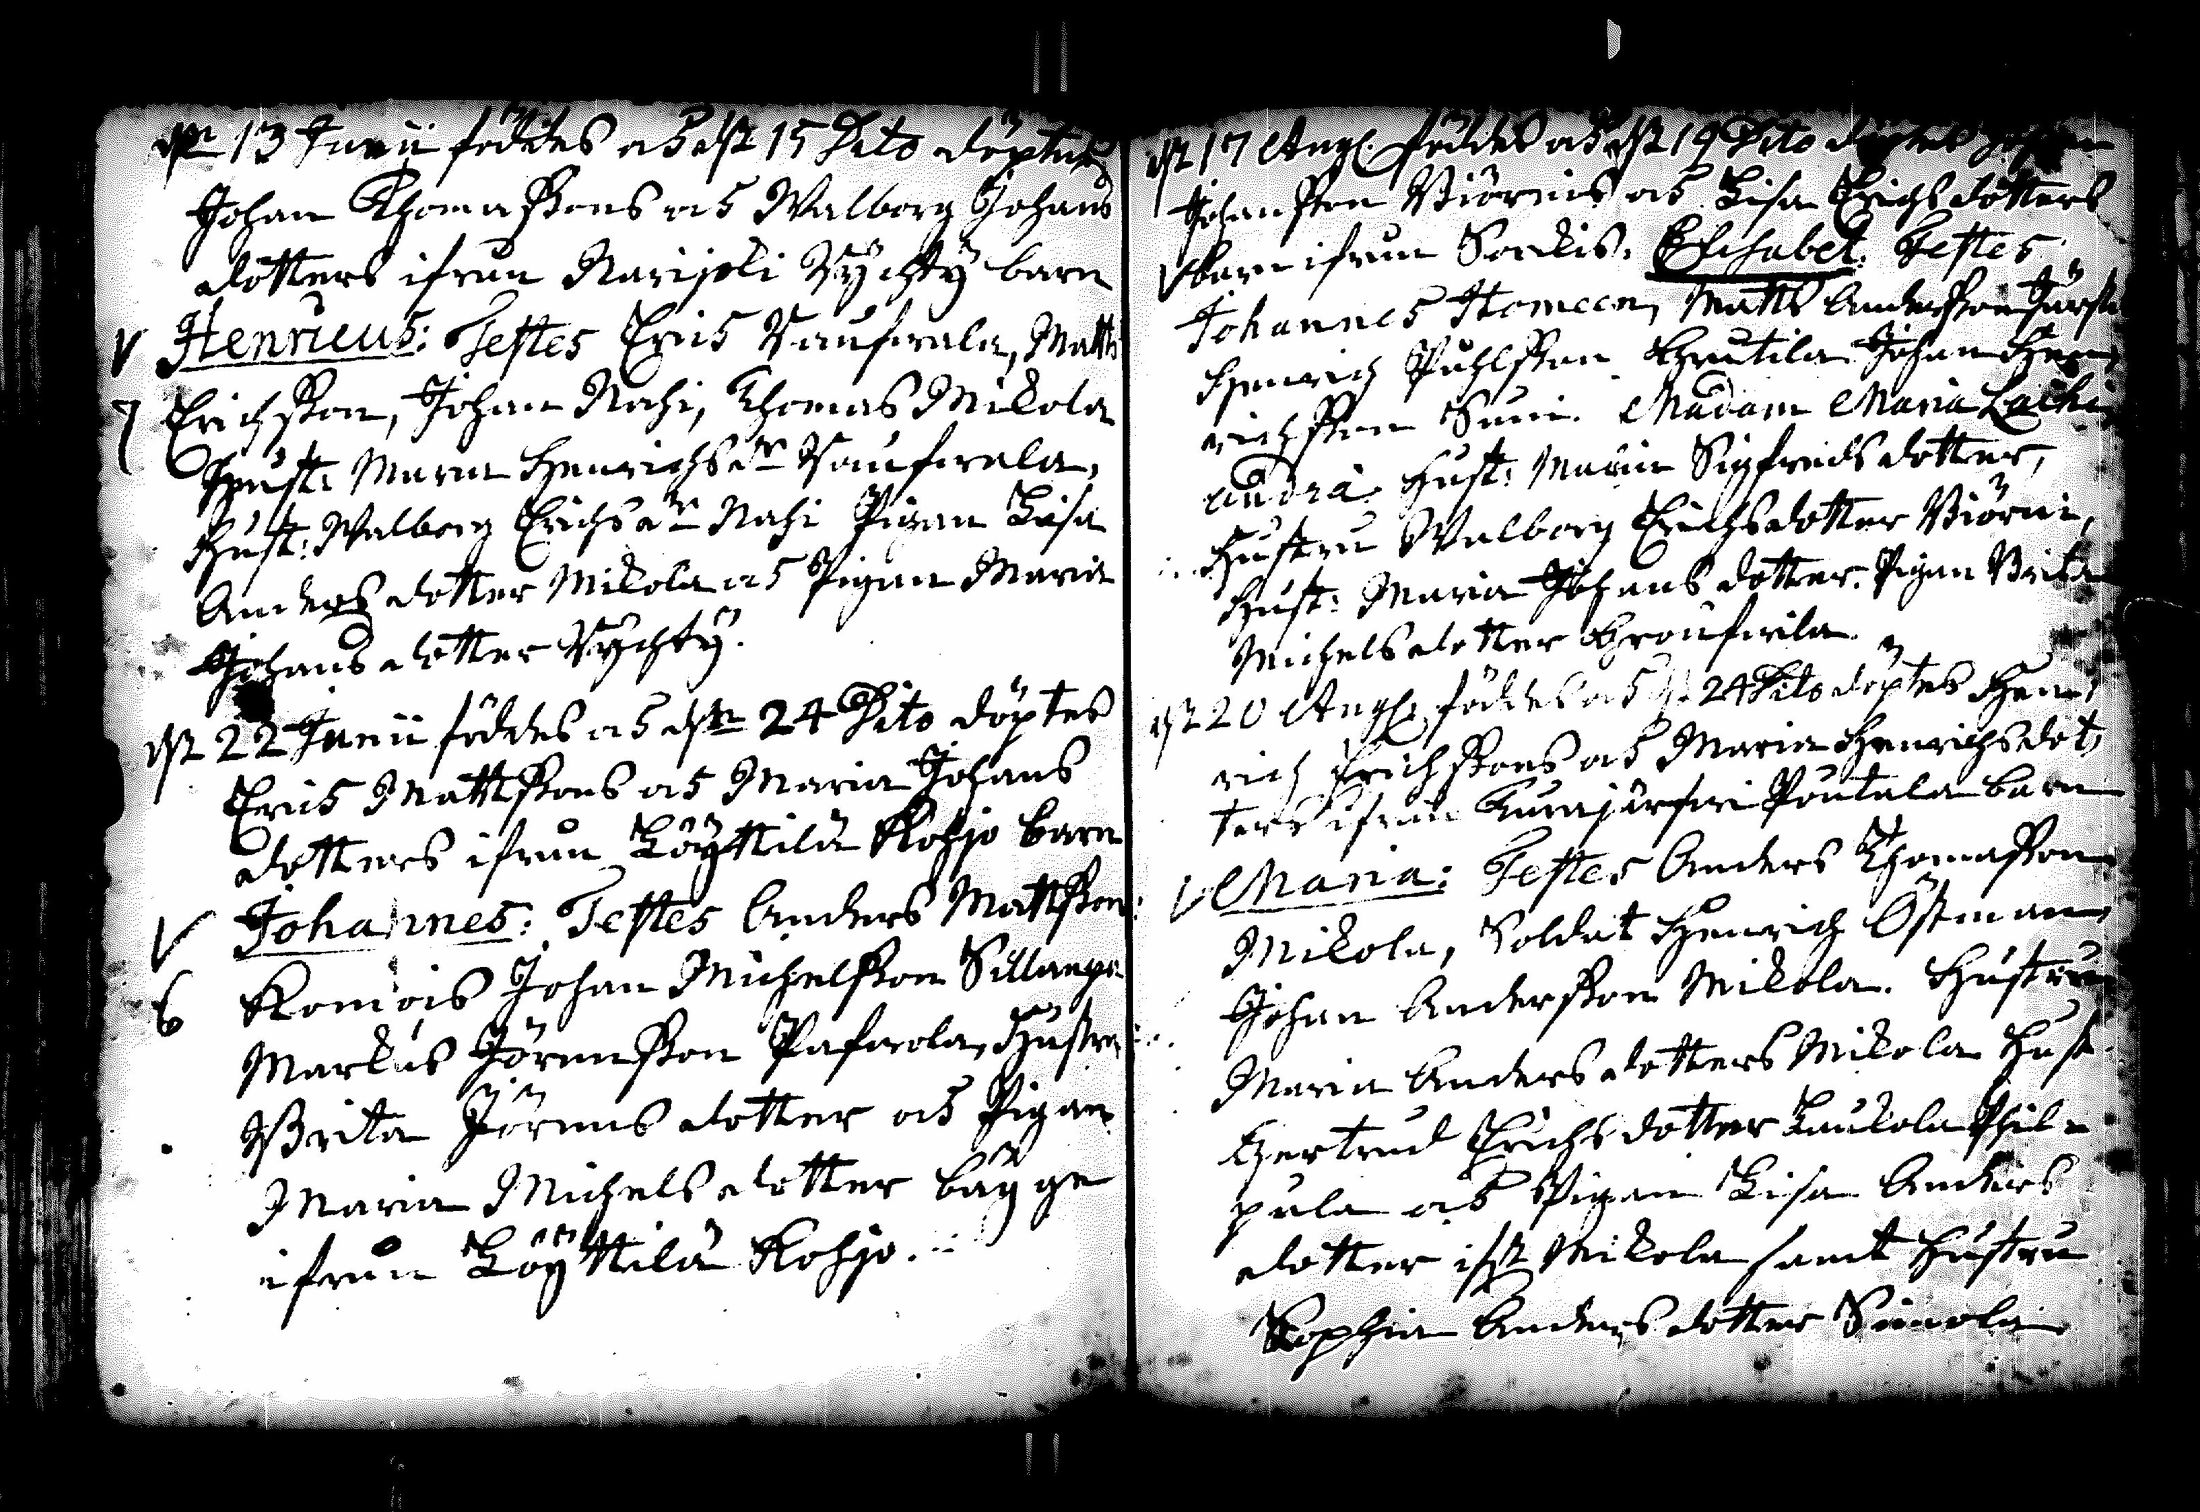 dn 13 Junii föddes och dn 15 Dito döptes
Johan Thomassons och Walborg Johans
dotters ifrån Narijoki Vychty barn
Henricus: Testes Eric Naufwala, Matts
Erichsson, Johan Nasi, Thomas Mikola
Hust: Maria Henrichsdr Naufwala,
Hust: Walborg Erichsdr Nasi Pigan Lisa
Anders dotter Mikola och Pigan Maria
Johans dotter Vychty.
dn 22 Junii föddes och dn 24 Dito döptes
Eric Mattssons och Maria Johans
dotters ifrån Löyttilä Kohjo barn
Johannes: Testes Anders Mattsson
6 Johan Michelsson
Markus Jörensson Hustru
Brita Jörens dotter och Pigan
Maria Michels dotter bägge
ifrån Löyttilä Kohjo.
dn 17 Aug. föddes och dn 19 Dito döptes Johan
Johansson Biörnis och Lisa Erichs dotters
barn ifrån Sorkis. Elisabet. Testes
Johannes Homeen, Matts Andersson
Henrich Påhlsson Johan Hen
richsson Suni. Madam Maria
Hust: Maria Sigfreds dotter,
Hustru Walborg Erichsdotter Biörni,
Hust: Maria Johans dotter. Pigan Brita
Michels dotter
dn 20 Aug. föddes och dn 24 Dito döptes Hen
rich Erichssons och Maria Henrichsdot
ters ifrån Kurajärfwi Poutala barn
Maria: Testes Anders Thomasson
Mikola, Soldat Henrich Östman
Johan Andersson Mikola. Hustru
Maria Anders dotters Mikola Hust
Gertrud Erichs dotter Laukola Phil
pula och Pigan Lisa Anders
dotter ifn Mikola samt Hustru
Sophia Anders dotter Simola